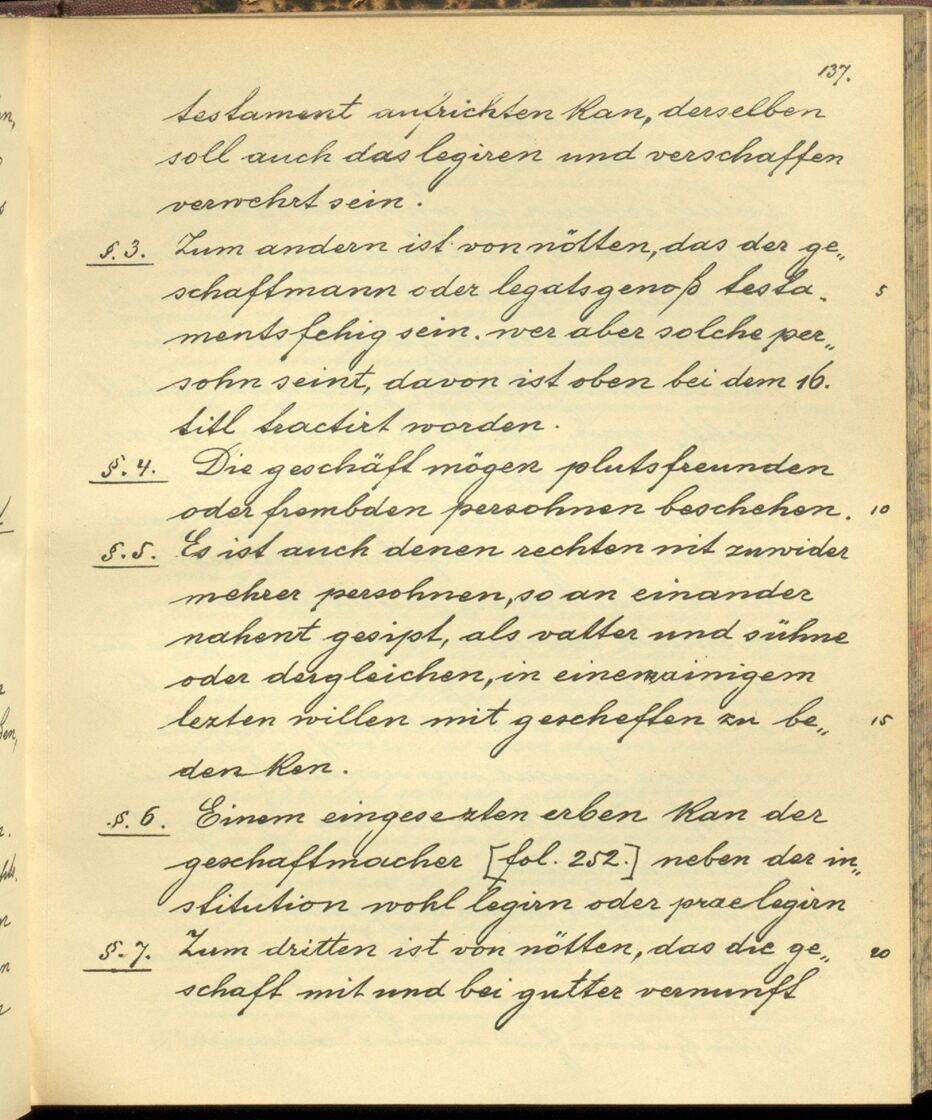 137.
testament aufrichten kan, derselben
soll auch das legiren und verschaffen
verwehrt sein.
§. 3. Zum andern ist von nötten, das der ge„
schaftmann oder legatsgenoß testa- 5
mentsfehig sein. wer aber solche per„
sohn seint, davon ist oben bei dem 16.
titl tractirt worden.
§. 4. Die geschäft mögen plutsfreunden
oder frembden persohnen beschehen. 10
§. 5. Es ist auch denen rechten nit zuwider
mehrer persohnen, so an einander
nahent gesipt, als vatter und sühne
oder dergleichen, in einem ainigem
lezten willen mit gescheften zu be„ 15
denken.
§. 6. Einem eingesezten erben kan der
geschaftmacher [fol. 252.] neben der in„
stitution wohl legirn oder praelegirn
§. 7. Zum dritten ist von nötten, das die ge„ 20
schaft mit und bei gutter vernunft